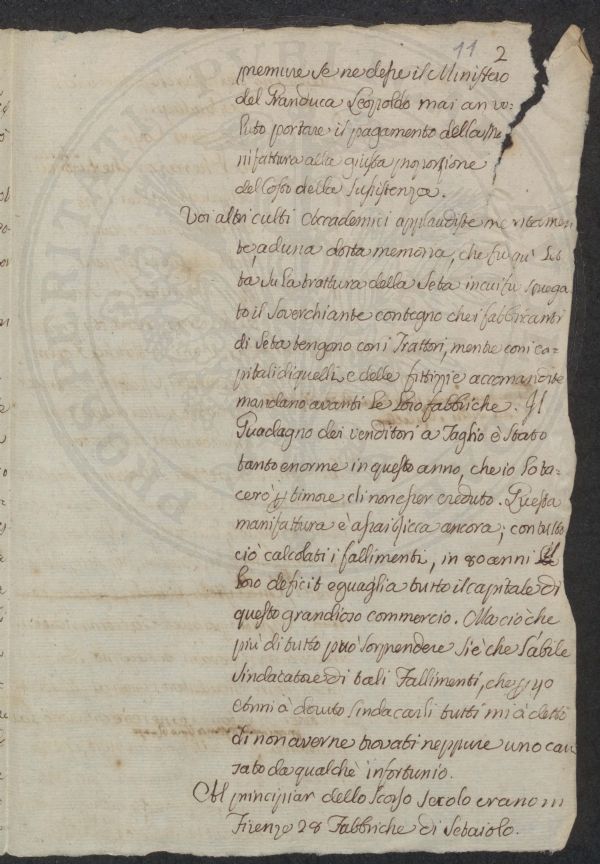 11 2
premure se ne desse il Ministero
del Granduca Leopoldo mai an vo-
luto portare il pagamento della Ma
nifattura alla giusta proporzione
del Costo della Sussistenza.
Voi altri culti Accademici applaudiste meritamen
te, ad una dotta memoria, che fu quì Let
ta su la trattura della Seta in cui fu spiega
to il soverchiante contegno che i fabbricanti
di Seta tengono con i Trattori, mentre con i ca-
pitali di quelli, e delle fittizie accomandite
mandano avanti le loro fabbriche. Il
Guadagno dei venditori a Taglio è stato
tanto enorme in questo anno, che io lo ta-
cerò p timore di non esser creduto. Questa
manifattura è assai ricca ancora; con tutto
ciò calcolati i fallimenti, in 80 anni il
loro deficit eguaglia tutto il capitale di
questo grandioso commercio. Ma ciò che
più di tutto può sorprendere si è che l'abile
Sindacatore di tali Fallimenti, che p 40
Anni à dovuto sindacarli tutti mi à detto
di non averne trovati neppure uno cau
sato da qualche infortunio.
Al principiar dello scorso secolo erano in
Firenze 28 Fabbriche di Setaiolo.
PROSPERITATI PUBL